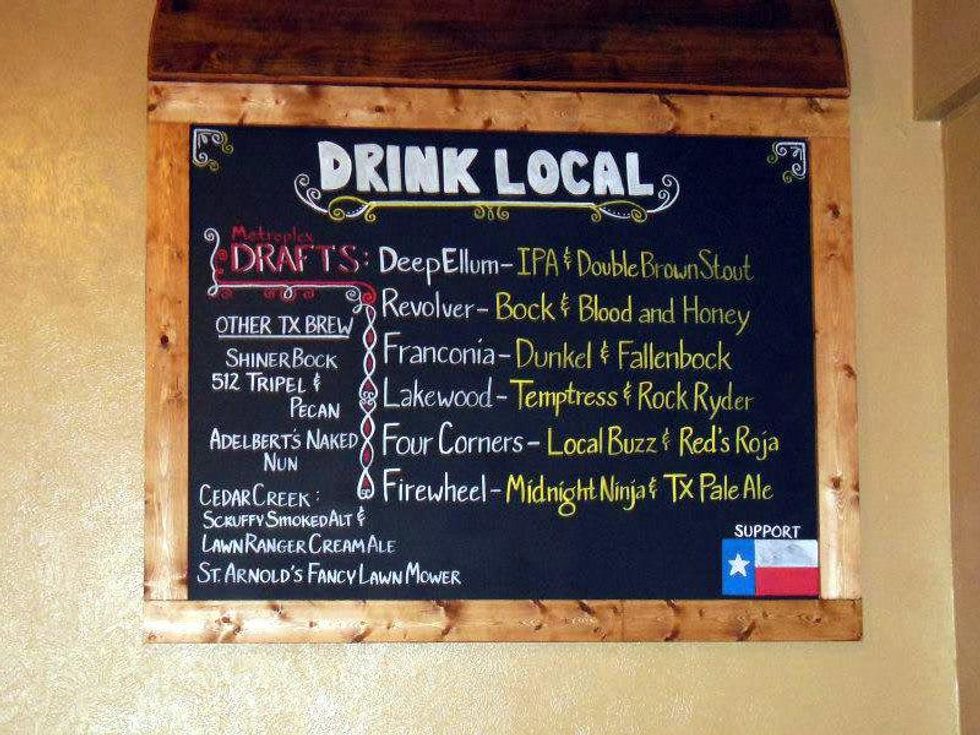 DRINK LOCAL
Metroplex
DRAFTS:
Deep Ellum - IPA & Double Brown Stout
Revolver - Bock & Blood and Honey
Franconia - Dunkel & Fallenbock
Lakewood - Temptress & Rock Ryder
Four Corners - Local Buzz & Red's Roja
Firewheel - Midnight Ninja & TX Pale Ale
OTHER TX BREW
SHINER BOCK
512 TRIPEL &
PECAN
ADELBERT'S NAKED
NUN
CEDAR CREEK:
SCRUFFY SMOKED ALT &
LAWN RANGER CREAM ALE
ST. ARNOLD'S FANCY LAWN MOWER
SUPPORT